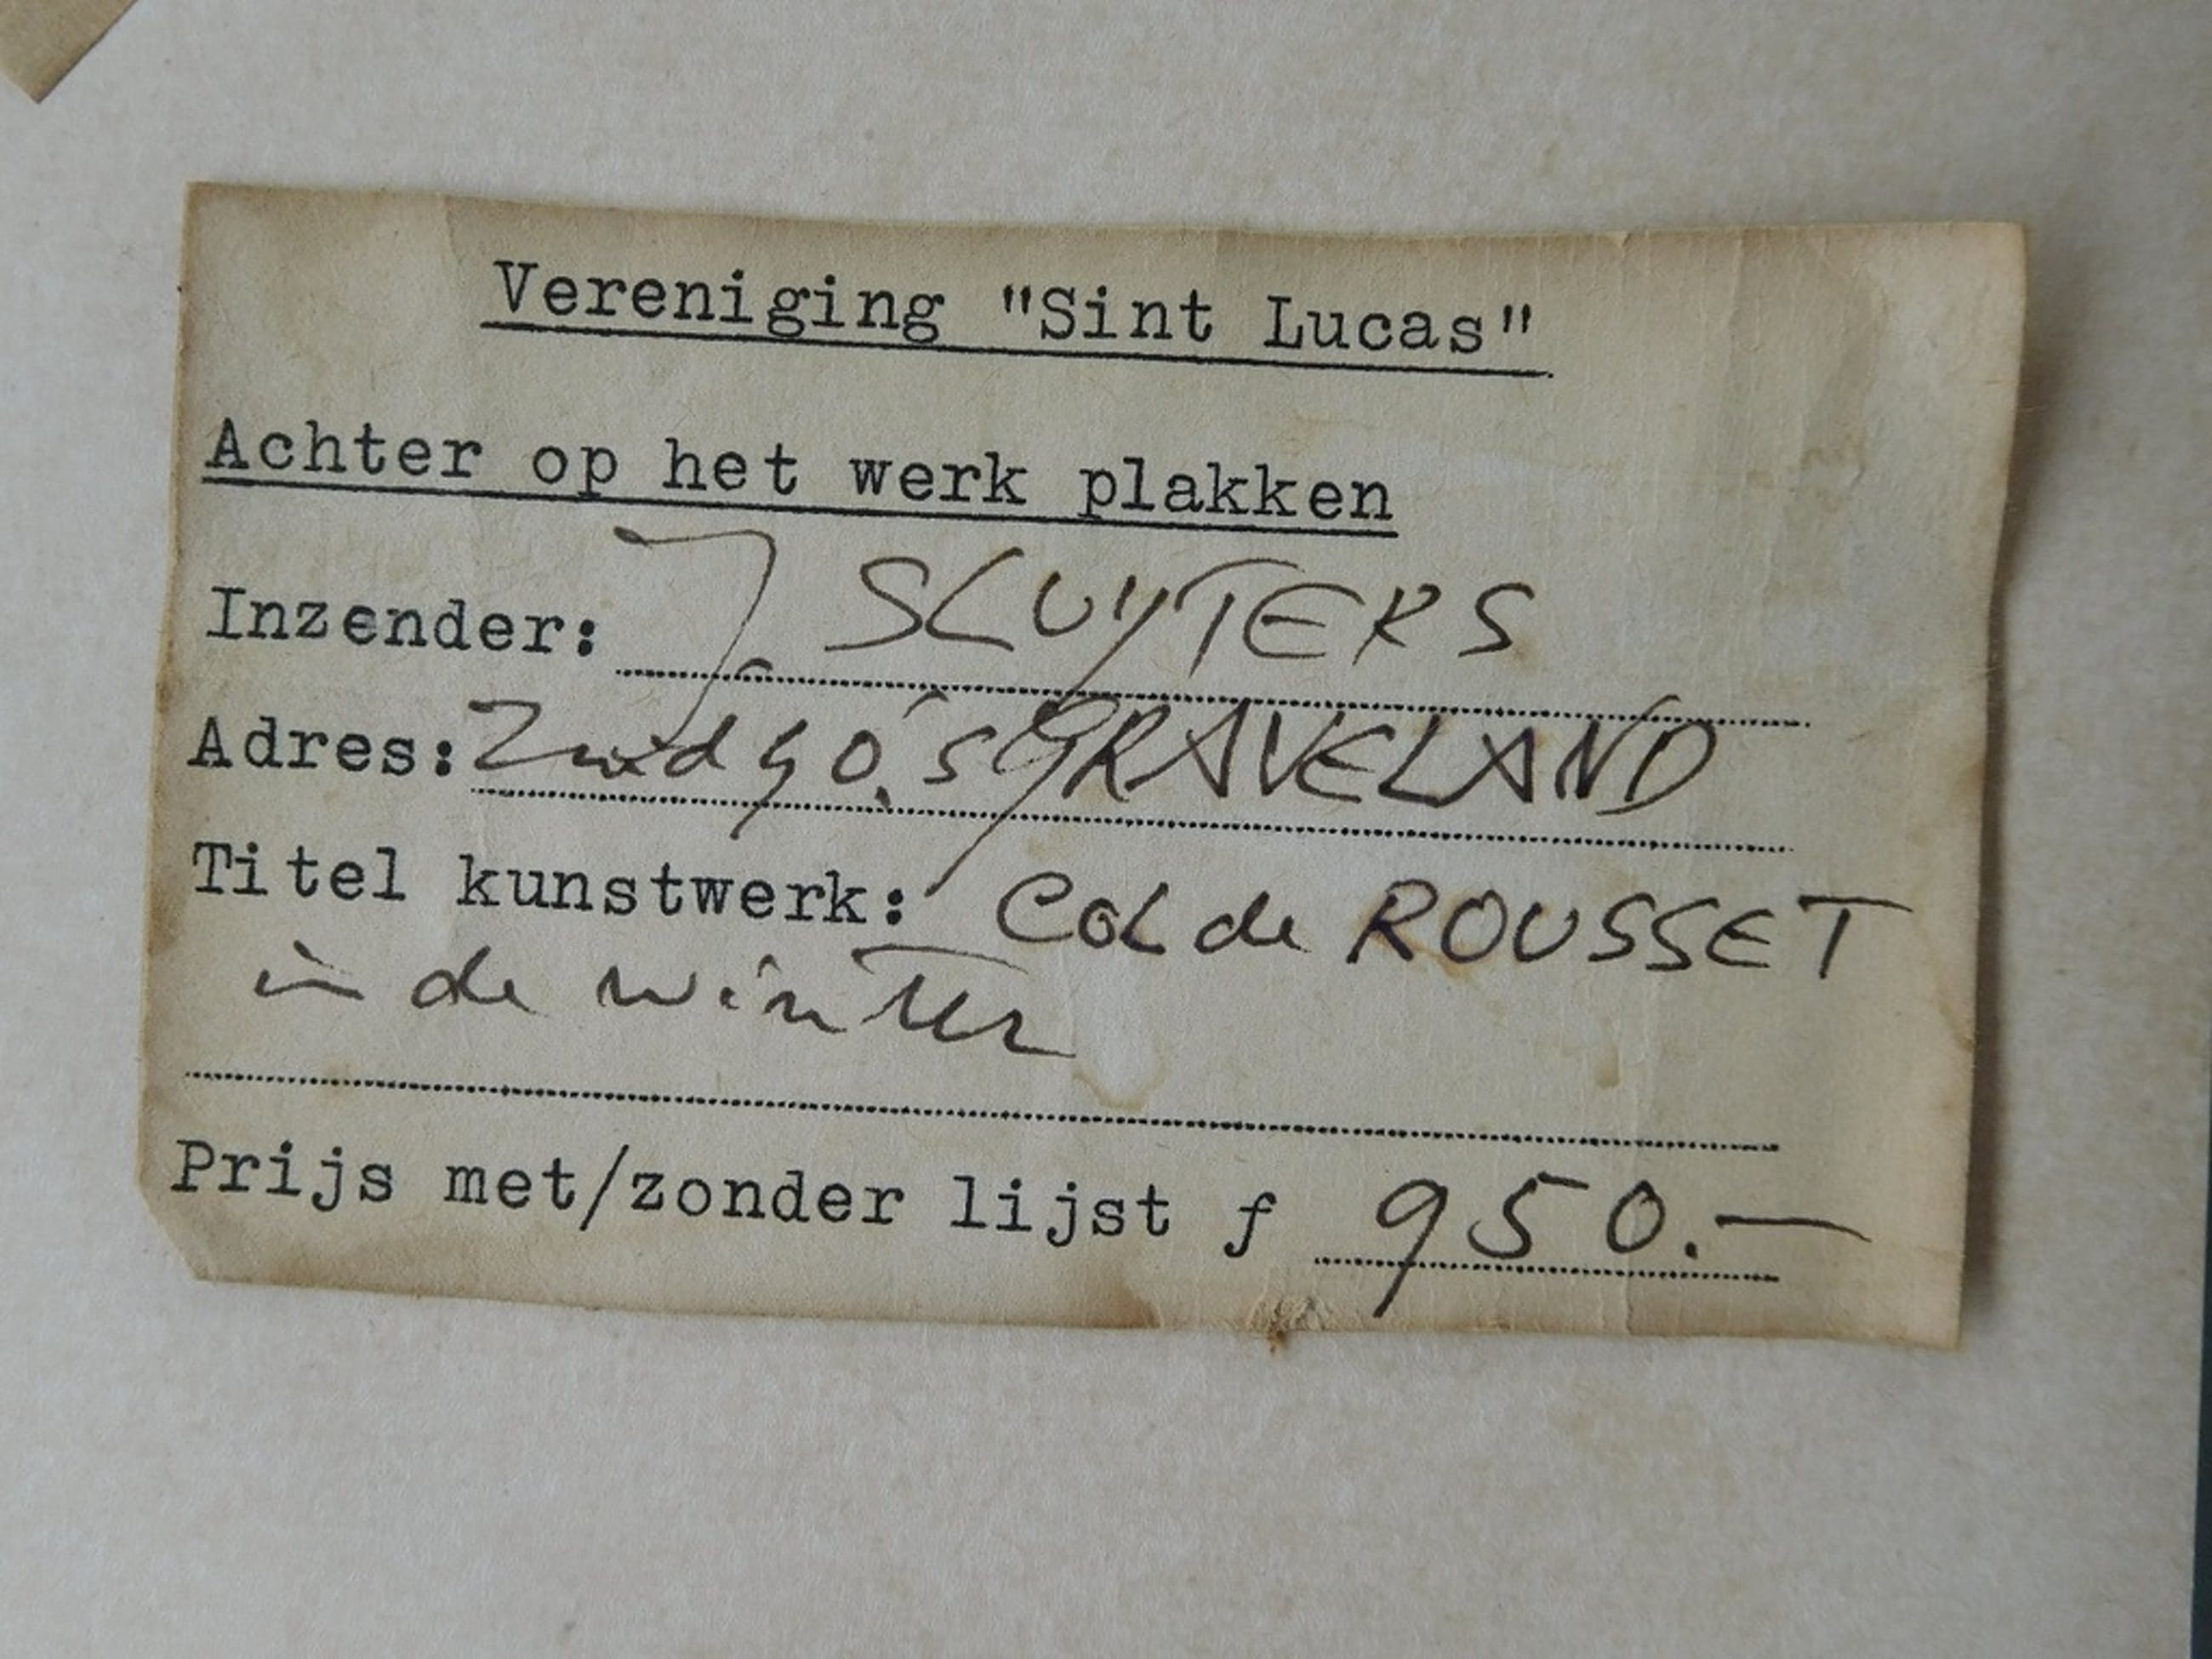 Vereniging "Sint Lucas"
Achter op het werk plakken
Inzender: J. SLUYTERS
Adres: Zuid 90, 's GRAVELAND
Titel kunstwerk: Col de ROUSSET
in de winter
Prijs met/zonder lijst ƒ 950.—